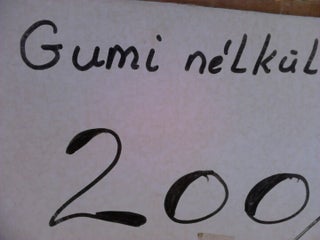 Gumi nélkül
200